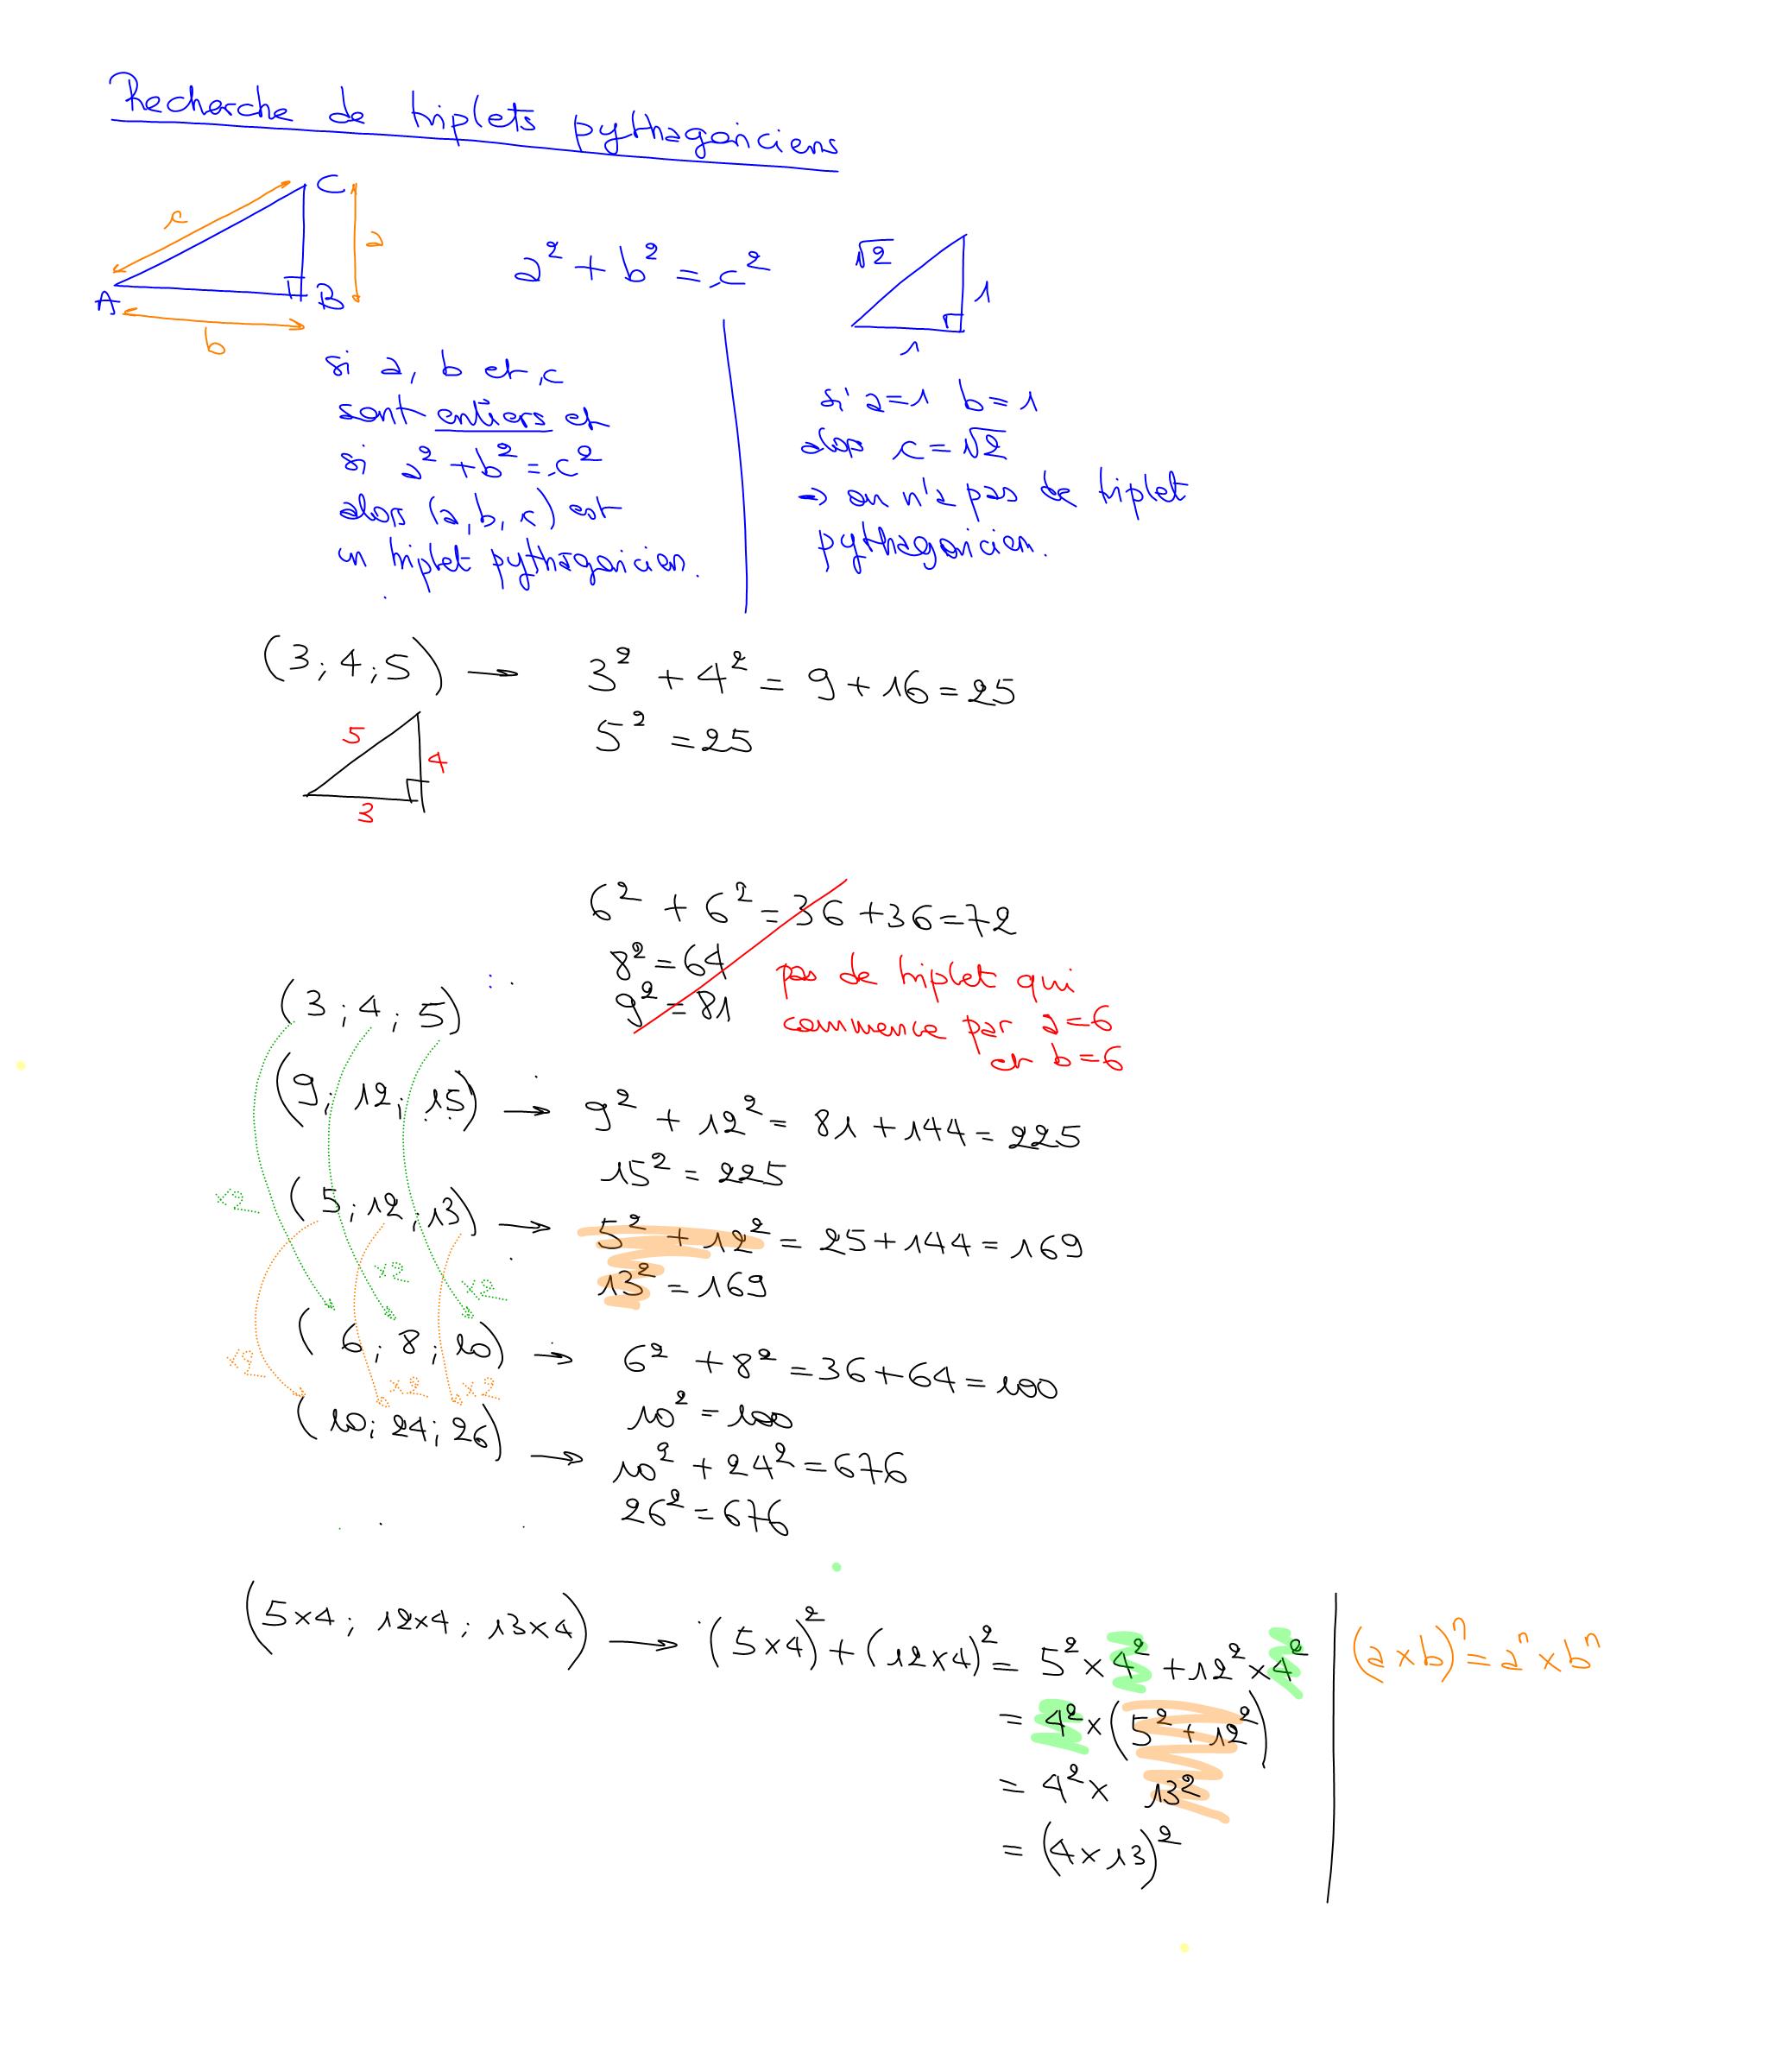 Recherche de triplets pythagoriciens
C
c
a
A
B
b
a² + b² = c²
√2
1
1
si a, b et c
sont entiers et
si a² + b² = c²
alors (a, b, c) est
un triplet pythagoricien.
si a = 1 b = 1
alors c = √2
→ on n'a pas de triplet
pythagoricien.
(3 ; 4 ; 5) → 3² + 4² = 9 + 16 = 25
5² = 25
5
4
3
6² + 6² = 36 + 36 = 72
8² = 64
9² = 81
pas de triplet qui
commence par a = 6
et b = 6
(3 ; 4 ; 5)
(9 ; 12 ; 15) → 9² + 12² = 81 + 144 = 225
15² = 225
×2
(5 ; 12 ; 13) → 5² + 12² = 25 + 144 = 169
13² = 169
×2
×2
(6 ; 8 ; 10) → 6² + 8² = 36 + 64 = 100
10² = 100
×2
×2
×2
(10 ; 24 ; 26) → 10² + 24² = 676
26² = 676
(5×4 ; 12×4 ; 13×4) → (5×4)² + (12×4)² = 5² × 4² + 12² × 4²
= 4² × (5² + 12²)
= 4² × 13²
= (4 × 13)²
(a × b)ⁿ = aⁿ × bⁿ